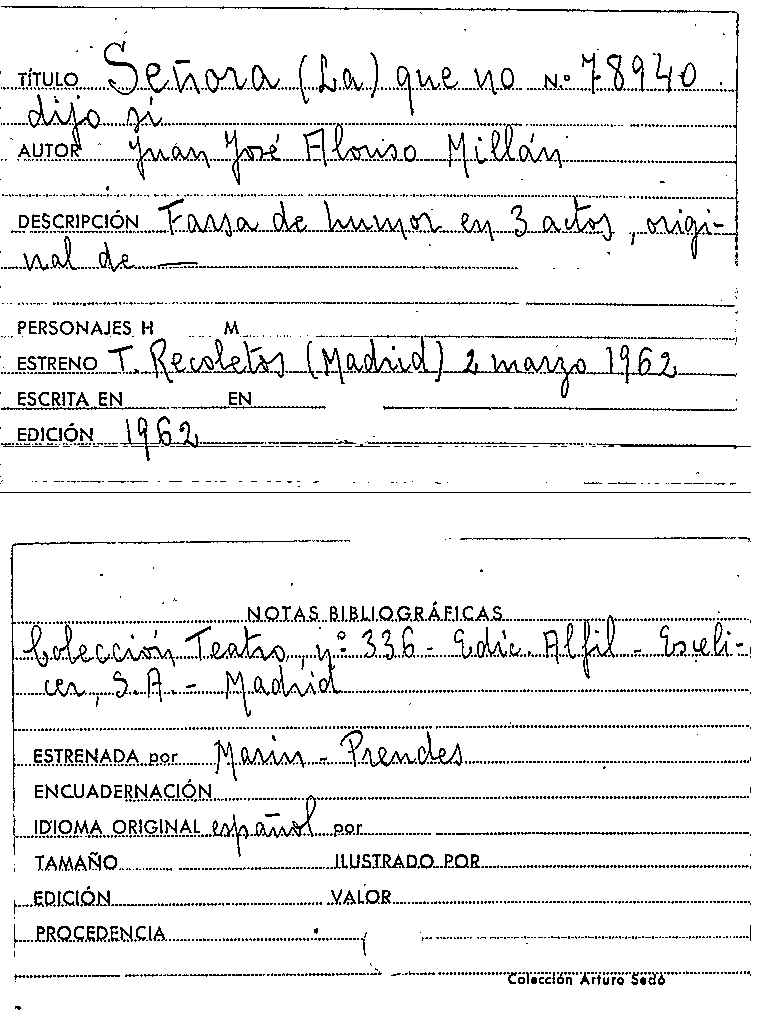 TÍTULO Señora (La) que no N.º 78940
dijo sí
AUTOR Juan José Alonso Millán
DESCRIPCIÓN Farsa de humor en 3 actos, origi-
nal de —
PERSONAJES H M
ESTRENO T. Recoletos (Madrid) 2 marzo 1962
ESCRITA EN EN
EDICIÓN 1962
NOTAS BIBLIOGRÁFICAS
Colección Teatro, nº 336 - Edic. Alfil - Esceli-
cer, S.A. - Madrid
ESTRENADA por Marin - Prendes
ENCUADERNACIÓN
IDIOMA ORIGINAL español por
TAMAÑO ILUSTRADO POR
EDICIÓN VALOR
PROCEDENCIA
Colección Arturo Sedó